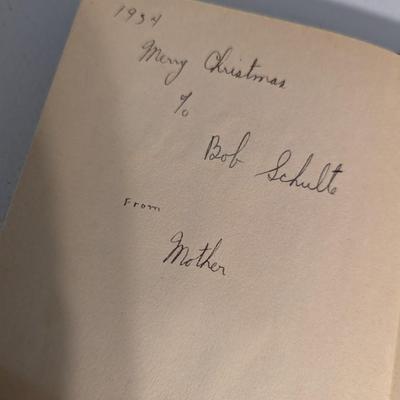 1934
Merry Christmas
To
Bob Schulte
From
Mother